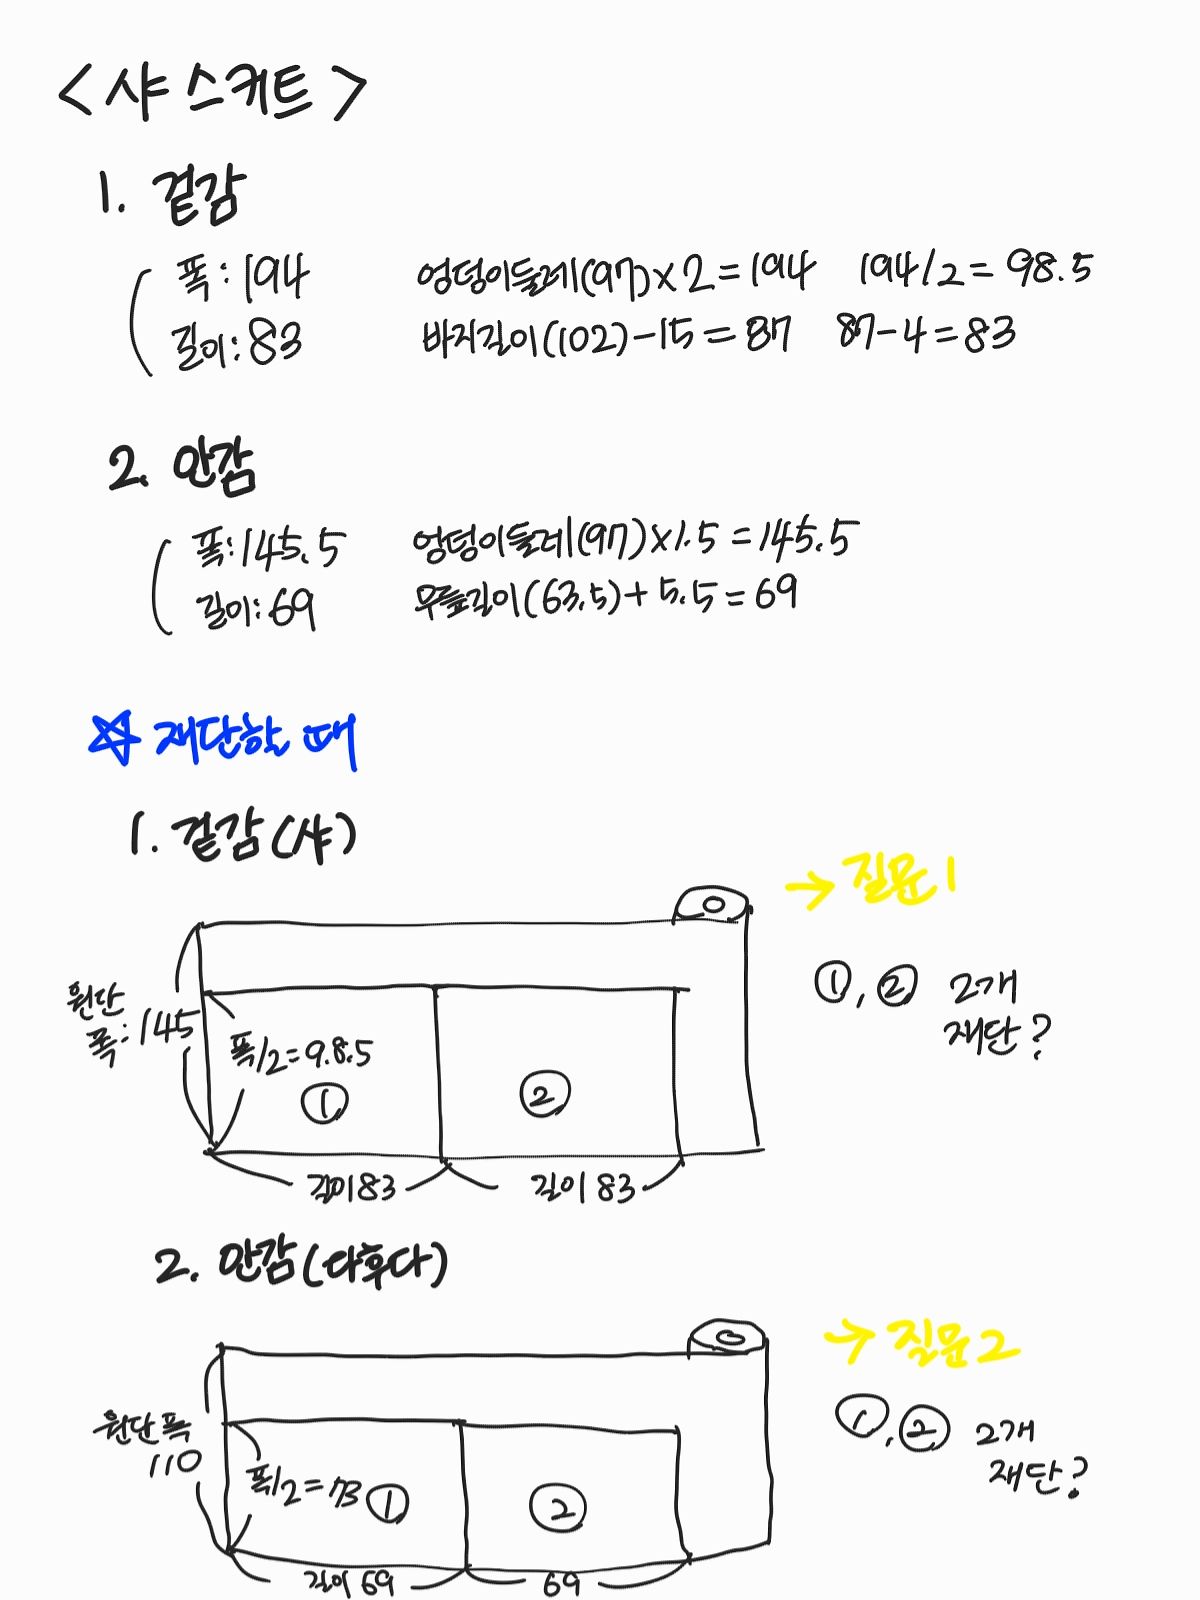 <샤 스커트>
1. 겉감
폭:194 엉덩이둘레(97)×2=194 194/2=98.5
길이:83 바지길이(102)-15=87 87-4=83
2. 안감
폭:145.5 엉덩이둘레(97)×1.5=145.5
길이:69 무릎길이(63.5)+5.5=69
☆ 재단할 때
1. 겉감(샤)
→ 질문1
①,② 2개
재단?
원단
폭:145
폭/2=9.8.5
① ②
길이83 길이83
2. 안감(다후다)
→ 질문2
①,② 2개
재단?
원단폭
110
폭/2=73 ① ②
길이 69 69